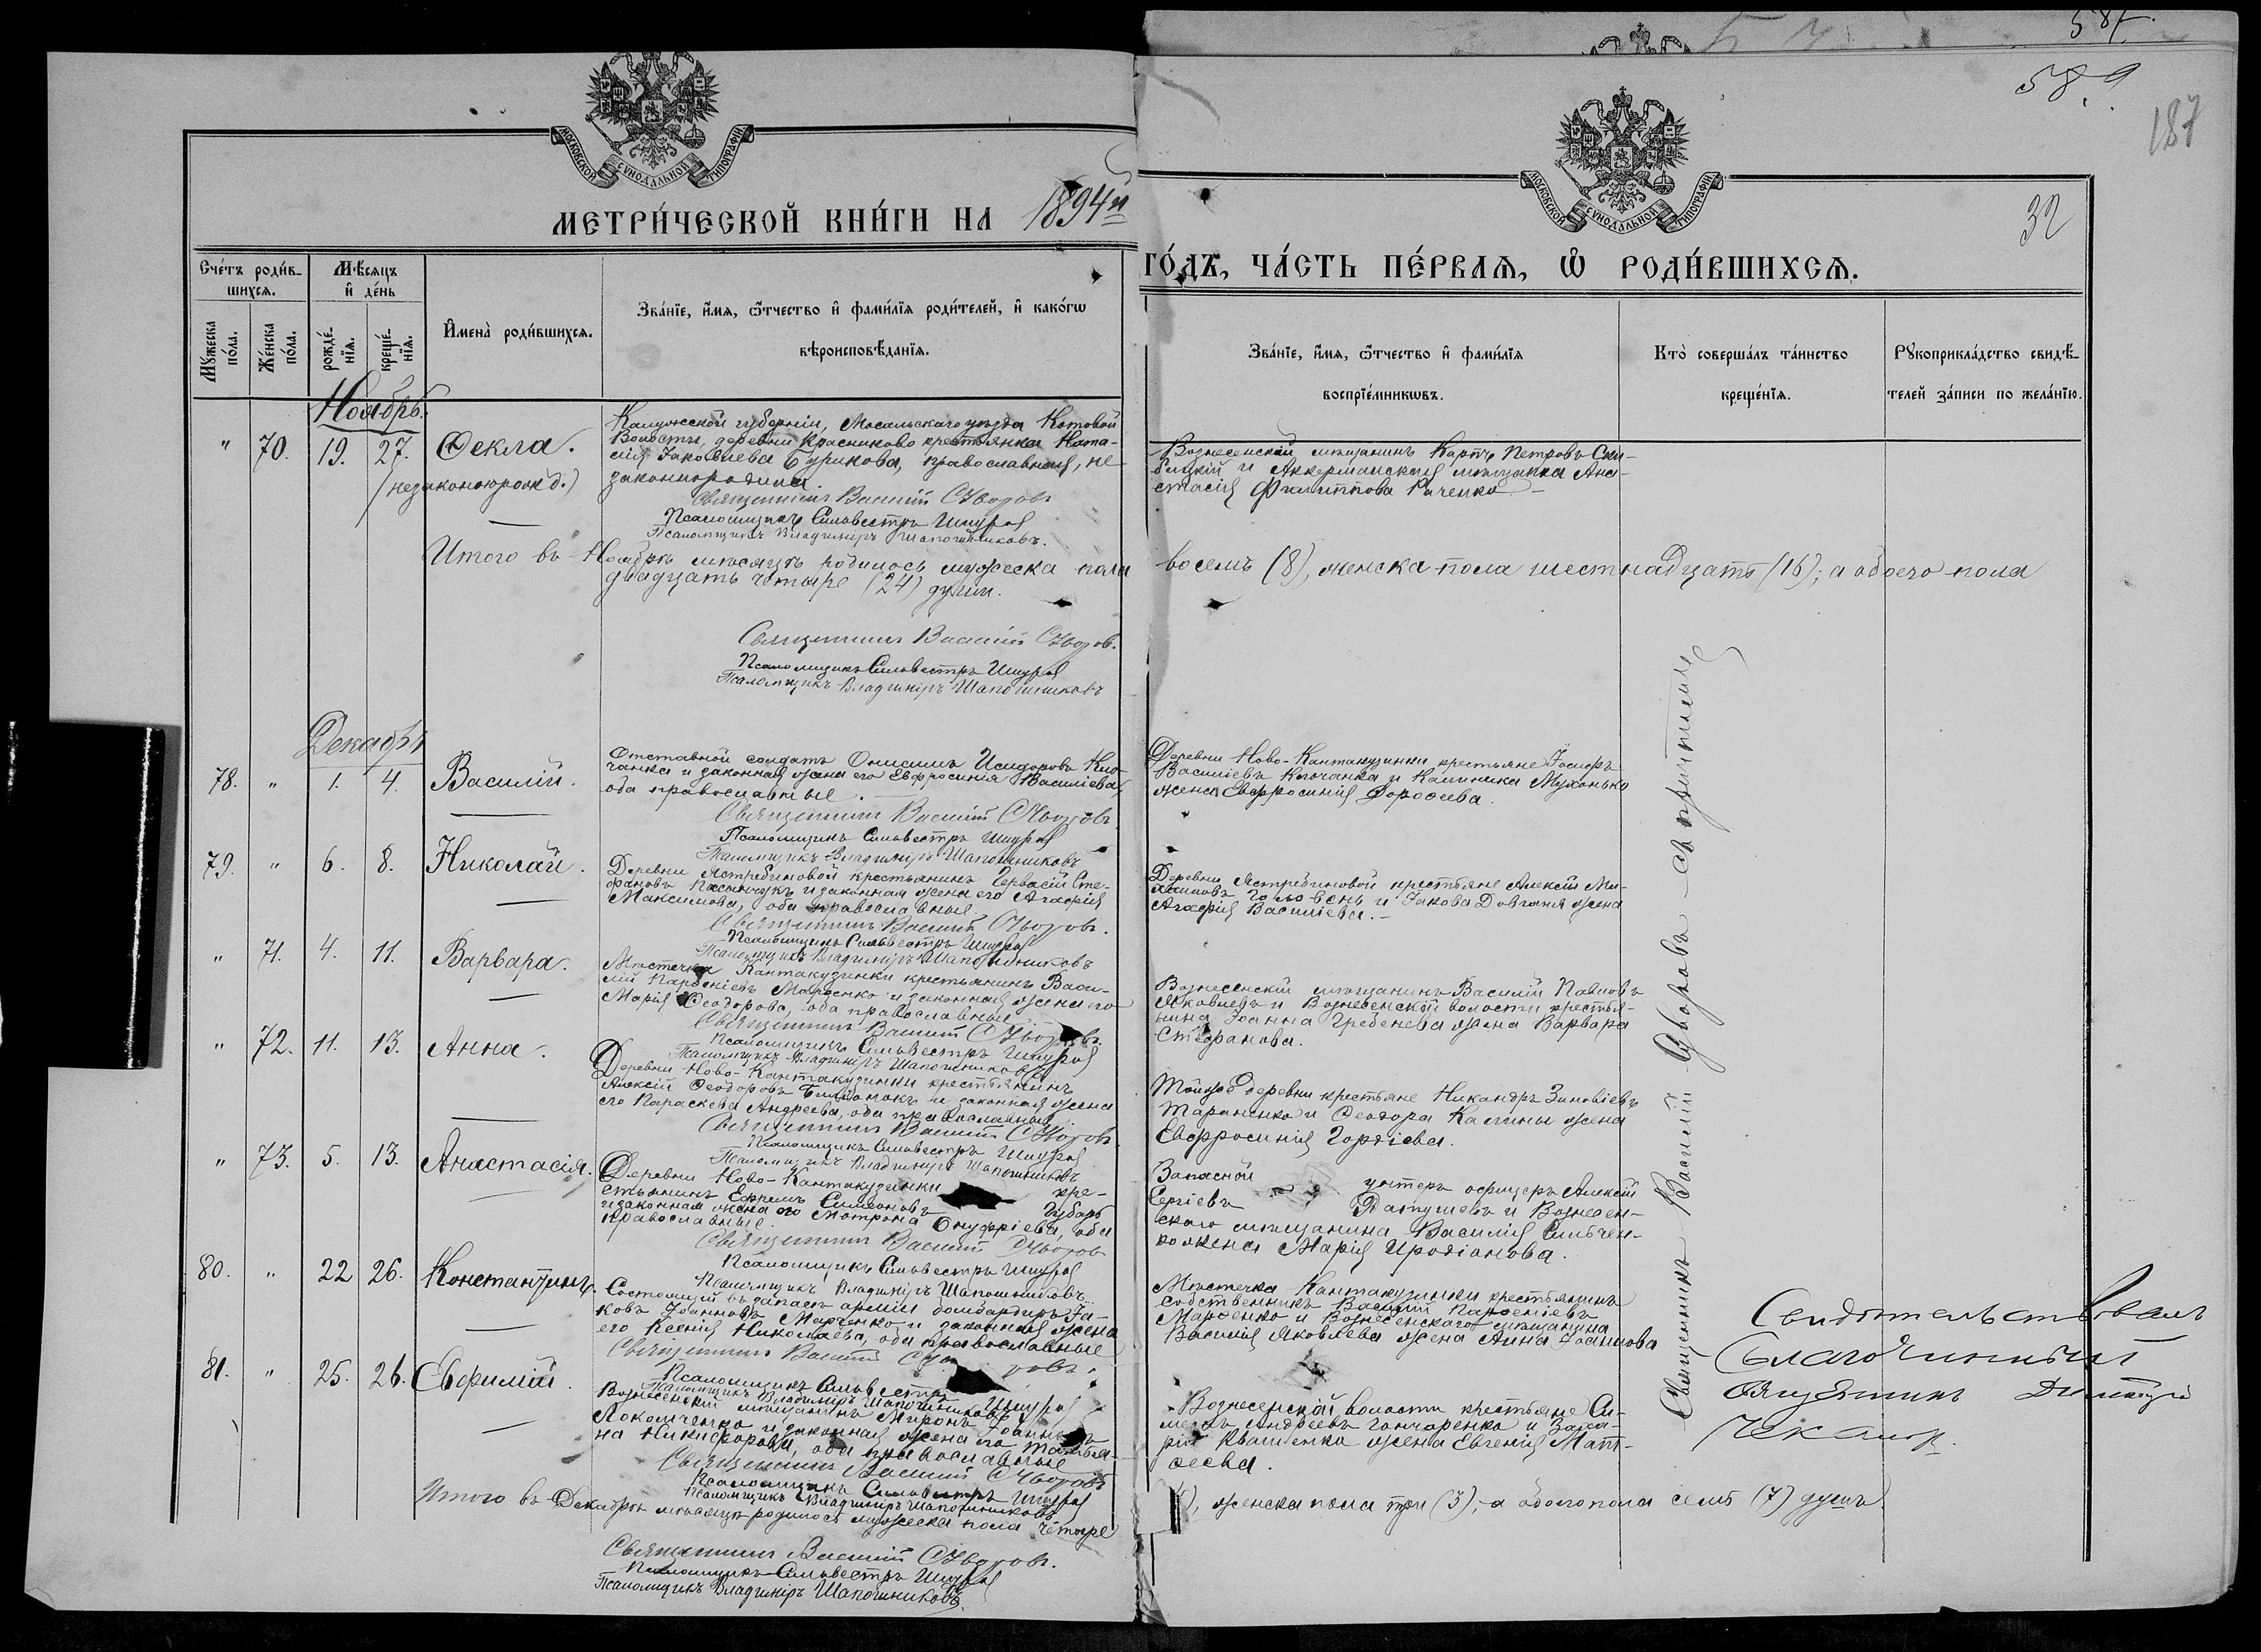 587.
589
187
МОСКОВСКОЙ СѴНОДАЛЬНОЙ ТИПОГРАФІИ
МОСКОВСКОЙ СѴНОДАЛЬНОЙ ТИПОГРАФІИ
32
МЕТРИ́ЧЕСКОЙ КНИ́ГИ НА 1894й
ГО́ДЪ, ЧА́СТЬ ПЕ́РВАЯ, Ѡ҆ РОДИ́ВШИХСѦ.
Сче́тъ роди́в-
шихсѧ.
Мѣ́сѧцъ
и҆ де́нь
Мꙋ́жеска
по́ла.
Же́нска
по́ла.
рожде́-
нїѧ.
креще́-
нїѧ.
И҆мена̀ роди́вшихсѧ.
Зва́нїе, и҆́мѧ, ѻ҆́тчество и҆ фами́лїѧ роди́телей, и҆ како́гѡ
вѣроисповѣ́данїѧ.
Зва́нїе, и҆́мѧ, ѻ҆́тчество и҆ фами́лїѧ
воспрїе́мникѡвъ.
Кто̀ соверша́лъ та́инство
креще́нїѧ.
Рꙋкоприкла́дство свидѣ́-
телей за́писи по жела́нїю.
Ноябрь.
" 70. 19. 27. Ѳекла.
(незаконнорожд.)
Калужской губерніи, Мосальскаго уѣзда Котовой
Волости, деревни Красниково крестьянка Ната-
лія Іаковлева Бурикова, православная, не
законнородила.
Священникъ Василій
Псаломщикъ Сильвестръ
Псаломщикъ Владиміръ Шапошниковъ.
Вознесенскій мѣщанинъ Карпъ Петровъ Ски-
бицкій и Аккерманская мѣщанка Ана-
стасія Филиппова Раченко
Итого въ Ноябрѣ мѣсяцѣ родилось мужеска пола восемь (8), женска пола шестнадцать (16); а обоего пола
двадцать четыре (24) души.
Священникъ Василій
Псаломщикъ Сильвестръ
Псаломщикъ Владиміръ Шапошниковъ
Декабрь
78. " 1. 4. Василій.
Отставной солдатъ Онисимъ Исидоровъ Кло-
чанка и законная жена его Евфросинія Василіева,
оба православные.
Священникъ Василій
Псаломщикъ Сильвестръ
Псаломщикъ Владиміръ Шапошниковъ
Деревни Ново-Кантакузинки крестьяне Іосифъ
Василіевъ Клочанка и Калиника Мухонько
жена Евфросинія Дороѳеева.
79. " 6. 8. Николай.
Деревни Ястребиновой крестьянинъ Гервасій Сте-
фановъ Пасынчукъ и законная жена его Агафія
Максимова, оба православные.
Священникъ Василій
Псаломщикъ Сильвестръ
Псаломщикъ Владиміръ Шапошниковъ
Деревни Ястребиновой крестьяне Алексій Ми-
хаиловъ и Іакова Довганя жена
Агафія Василіева.
" 71. 4. 11. Варвара.
Мѣстечка Кантакузинки крестьянинъ Васи-
лій Парѳеніевъ Марченко и законная жена его
Марія Ѳеодорова, оба православные.
Священникъ Василій
Псаломщикъ Сильвестръ
Псаломщикъ Владиміръ Шапошниковъ
Вознесенскій мѣщанинъ Василій Павловъ
Яковлевъ и Вознесенской волости крестья-
нина Іоанна Гребенева жена Варвара
Стефанова.
" 72. 11. 13. Анна.
Деревни Ново-Кантакузинки крестьянинъ
Алексій Ѳеодоровъ и законная жена
его Параскева Андреева, оба православные.
Священникъ Василій
Псаломщикъ Сильвестръ
Псаломщикъ Владиміръ Шапошниковъ
Той же деревни крестьяне Никандръ Зиновіевъ
Тараненко и Ѳеодора Калины жена
Евфросинія Гордіева.
" 73. 5. 13. Анастасія.
Деревни Ново-Кантакузинки кре-
стьянинъ Ефремъ Симеоновъ Губарь
и законная жена его Матрона Онуфріева, оба
православные.
Священникъ Василій
Псаломщикъ Сильвестръ
Псаломщикъ Владиміръ Шапошниковъ
Запасной унтеръ офицеръ Алексій
Сергіевъ и Вознесен-
скаго мѣщанина Василія Сильчен-
ко жена Марія Иродіанова.
80. " 22 26. Константинъ.
Состоящій въ запасѣ арміи бомбардиръ Іа-
ковъ Іоанновъ Марченко и законная жена
его Ксенія Николаева, оба православные
Священникъ Василій
Псаломщикъ Сильвестръ
Псаломщикъ Владиміръ Шапошниковъ
Мѣстечка Кантакузинки крестьянинъ
собственникъ Василій Парѳеніевъ
Марченко и Вознесенскаго мѣщанина
Василія Яковлева жена Анна Іоаннова
81. " 25. 26. Евфимій.
Вознесенскій мѣщанинъ Миронъ Іоанновъ
Локотченко и законная жена его Татья-
на Никифорова, оба православные
Священникъ Василій
Псаломщикъ Сильвестръ
Псаломщикъ Владиміръ Шапошниковъ
Вознесенской волости крестьяне Си-
меонъ Андреевъ Гончаренко и Заха-
рія Квашенко жена Евгенія Мат-
ѳеева.
Итого въ Декабрѣ мѣсяцѣ родилось мужеска пола четыре (4), женска пола три (3), а обоего пола семь (7) душъ.
Священникъ Василій
Псаломщикъ Сильвестръ
Псаломщикъ Владиміръ Шапошниковъ.
Священникъ Василій
Свидѣтельствовалъ
Благочинный
Священникъ Димитрій